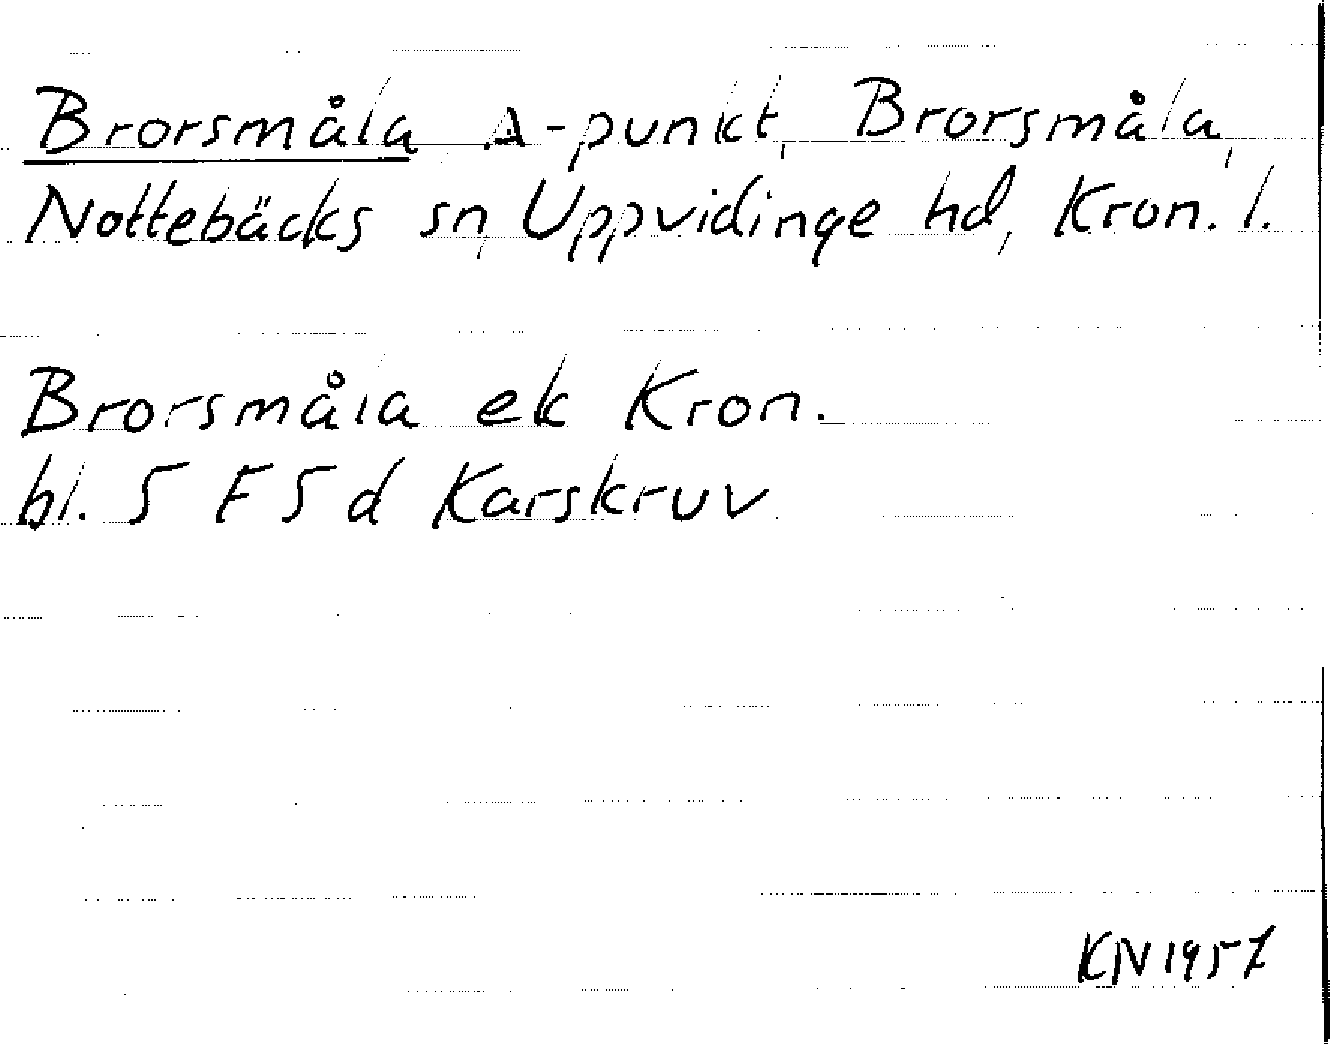 Brorsmåla A-punkt, Brorsmåla,
Nottebäcks sn, Uppvidinge hd, Kron. l.
Brorsmåla ek Kron.
bl. 5 F 5 d Karskruv
KN 1957